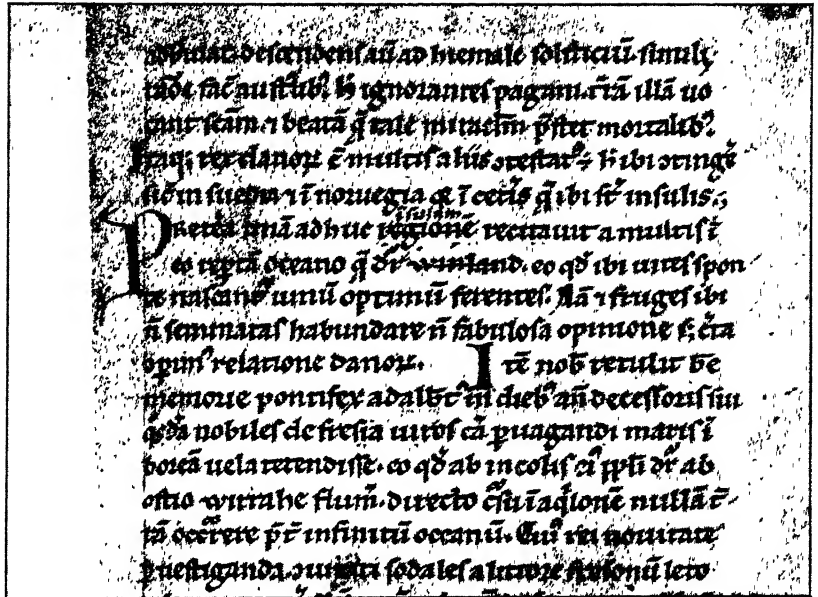 descendens aū ad hiemale solsticiū simili
tud̄e fac̄ austrib⁊ h̄ ignorantes pagani t̄rā illā uo
cant sc̄am ⁊ beatā q̄ tale miraclm̄ p̄stet mortalib⁊
Itaq; rex danoꝝ ē multis aliis ꝯtestatᷣ h̄ ibi ꝯtinge
sic̄ in suedia ⁊ ī noruegia & ī cet̄is q̄ ibi st̄ insulis.,
Pretea unā adhuc insulam regionē recitauit a multis ī
eo reptā oceano q̄ dr̄ winland. eo qd̄ ibi uites spon
te nascant᷑ uinū optimū ferentes. Nā ⁊ fruges ibi
n̄ seminatas habundare n̄ fabulosa opinione s; c̄ta
ꝯpim᷒ relatione danoꝝ. Itē nob̄ retulit be
memorie pontifex adalb̄t᷒ in dieb᷒ an̄decessoris sui
q̄sdā nobiles de fresia uiros cā puagandi maris ī
boreā uela tetendisse. eo qd̄ ab incolis ei᷒ ppl̄i dr̄ ab
ostio wirrahe flum̄. directo c̄su ī aq̄lonē nullā t̄
rā occ̄rere p̄t̄ infinitū oceanū. Cui᷒ rei nouitate
puestiganda. ꝯiurati sodales a littore fresonū leto